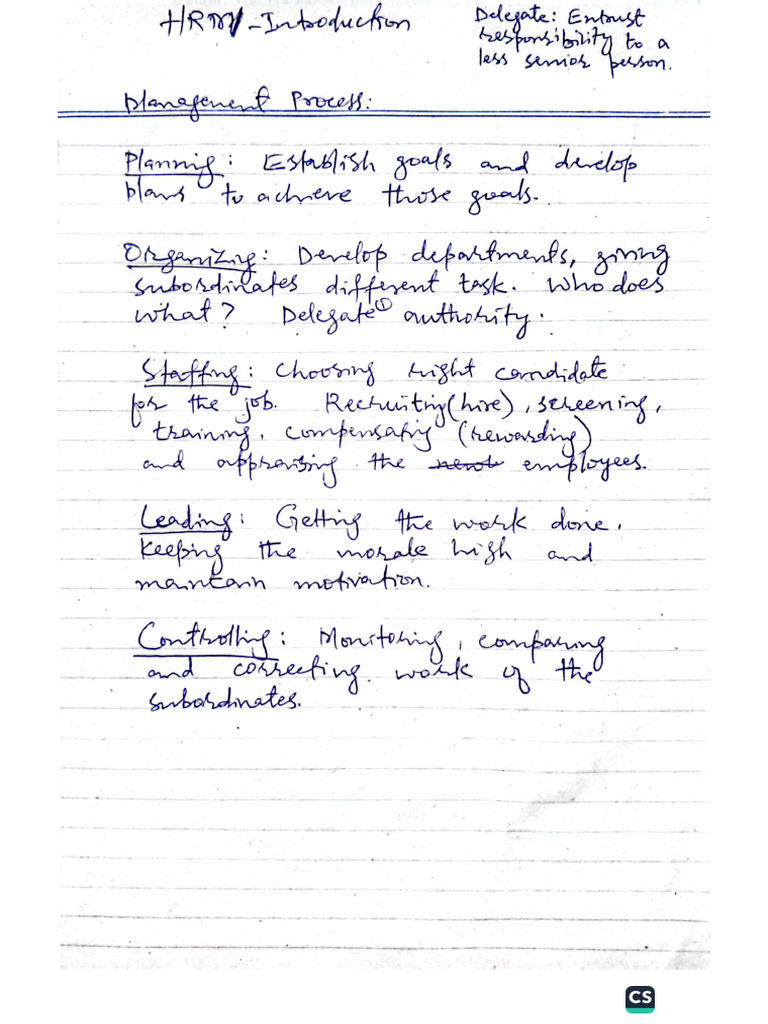 HRM-Introduction
Delegate: Entrust
responsibility to a
less senior person.
Management Process:
Planning: Establish goals and develop
plans to achieve those goals.
Organizing: Develop departments, giving
subordinates different task. Who does
what? Delegate① authority.
Staffing: Choosing right candidate
for the job. Recruiting (hire), screening,
training, compensating (rewarding)
and appraising the employees.
Leading: Getting the work done,
keeping the morale high and
maintain motivation.
Controlling: Monitoring, comparing
and correcting work of the
subordinates.
CS